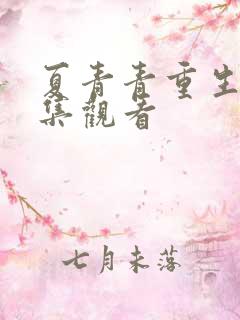 夏青青重生
集觀看
七月未落